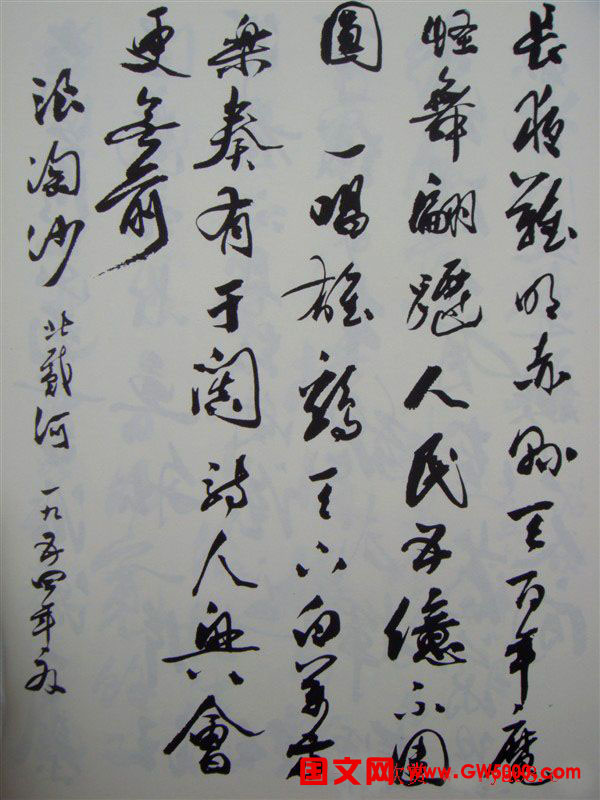 長夜難明赤縣天百年魔
怪舞翩躚人民五億不團
圓 一唱雄鷄天下白萬方
樂奏有于闐詩人興會
更無前
浪淘沙 北戴河 一九五四年夏
国文网 www.GW5000.com